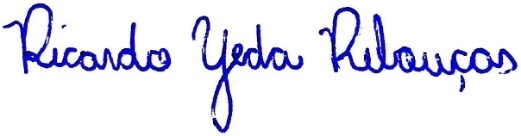 Ricardo Yeda Rebouças